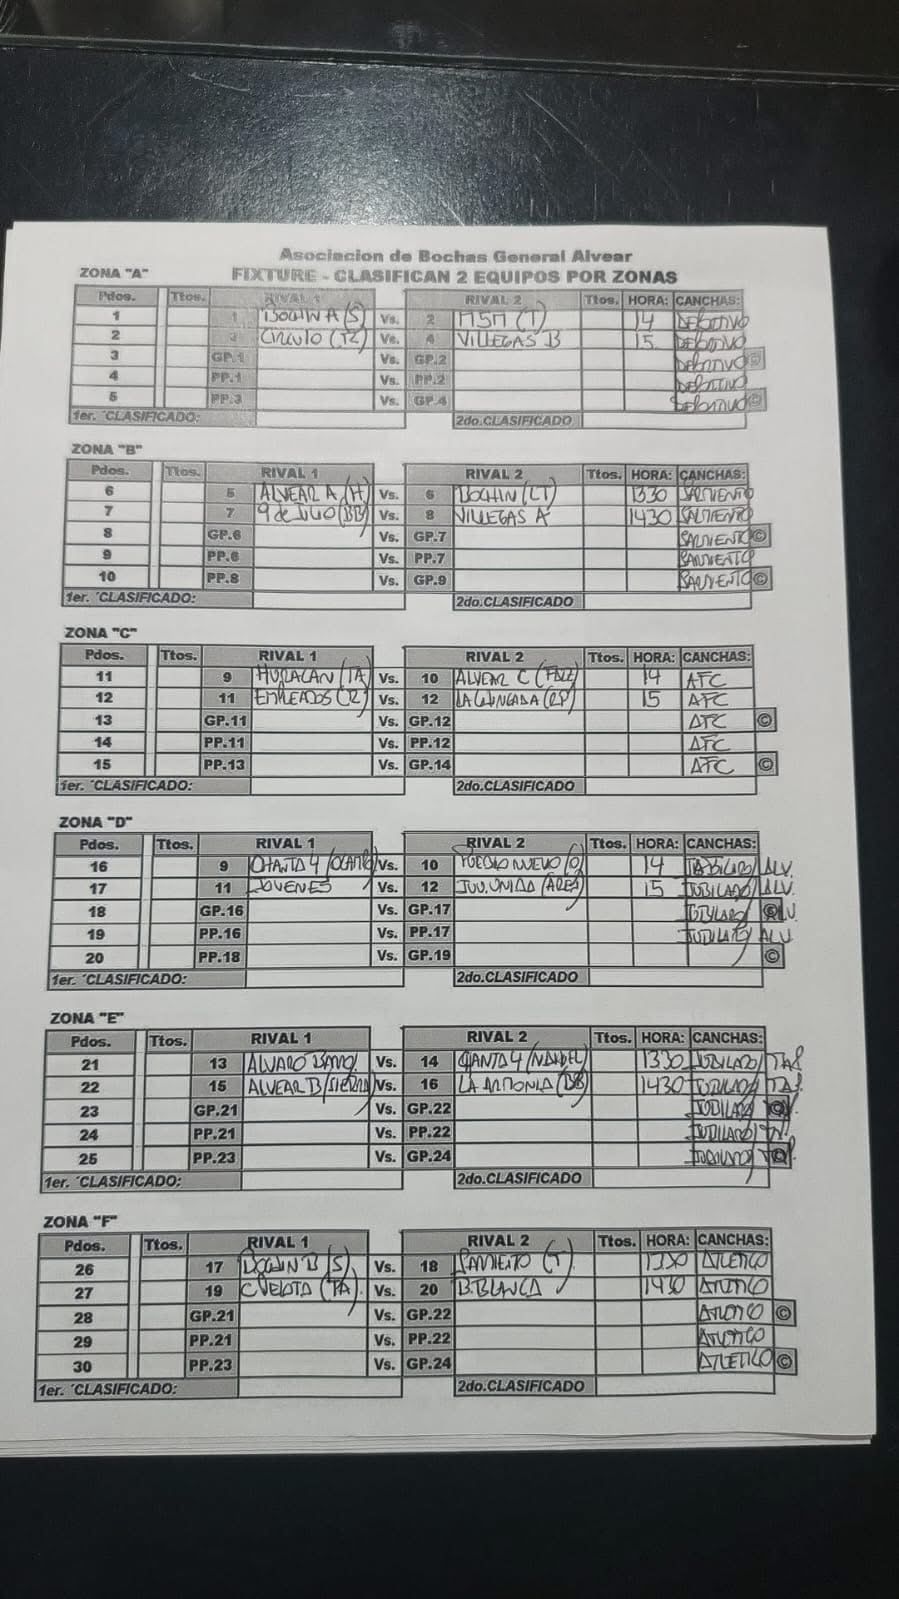 Asociacion de Bochas General Alvear
ZONA "A" FIXTURE - CLASIFICAN 2 EQUIPOS POR ZONAS
Pdos. Ttos. RIVAL 1 RIVAL 2 Ttos. HORA: CANCHAS:
1 1 BOCHIN A (S) Vs. 2 MSM (T) 14 DEPORTIVO
2 3 CIRCULO (TL) Vs. 4 VILLEGAS B 15 DEPORTIVO
3 GP.1 Vs. GP.2 DEPORTIVO ©
4 PP.1 Vs. PP.2 DEPORTIVO
5 PP.3 Vs. GP.4 DEPORTIVO ©
1er. ´CLASIFICADO: 2do.CLASIFICADO
ZONA "B"
Pdos. Ttos. RIVAL 1 RIVAL 2 Ttos. HORA: CANCHAS:
6 5 ALVEAR A (H) Vs. 6 BOCHIN (LT) 1330 SARMIENTO
7 7 9 de JULIO (BB) Vs. 8 VILLEGAS A 1430 SARMIENTO
8 GP.6 Vs. GP.7 SARMIENTO ©
9 PP.6 Vs. PP.7 SARMIENTO
10 PP.8 Vs. GP.9 SARMIENTO ©
1er. ´CLASIFICADO: 2do.CLASIFICADO
ZONA "C"
Pdos. Ttos. RIVAL 1 RIVAL 2 Ttos. HORA: CANCHAS:
11 9 HURACAN (TA) Vs. 10 ALVEAR C 14 AFC
12 11 EMPLEADOS (R) Vs. 12 (RP) 15 AFC
13 GP.11 Vs. GP.12 AFC ©
14 PP.11 Vs. PP.12 AFC
15 PP.13 Vs. GP.14 AFC ©
1er. ´CLASIFICADO: 2do.CLASIFICADO
ZONA "D"
Pdos. Ttos. RIVAL 1 RIVAL 2 Ttos. HORA: CANCHAS:
16 9 CHANTA 4 (OCAMPO) Vs. 10 PUEBLO NUEVO (O) 14 JUBILADO/ALV.
17 11 JOVENES Vs. 12 JUV. UNIDA (ARES) 15 JUBILADO/ALV.
18 GP.16 Vs. GP.17 JUBILADO/ALV. ©
19 PP.16 Vs. PP.17 JUBILADO/ALV
20 PP.18 Vs. GP.19 ©
1er. ´CLASIFICADO: 2do.CLASIFICADO
ZONA "E"
Pdos. Ttos. RIVAL 1 RIVAL 2 Ttos. HORA: CANCHAS:
21 13 ALVARO BARROS Vs. 14 CHANTA 4 1330 JUBILADO/
22 15 ALVEAR B (SIERRA) Vs. 16 LA ANTONIA (BB) 1430 JUBILADO/
23 GP.21 Vs. GP.22 JUBILADO/ ©
24 PP.21 Vs. PP.22 JUBILADO/
25 PP.23 Vs. GP.24 JUBILADO/ ©
1er. ´CLASIFICADO: 2do.CLASIFICADO
ZONA "F"
Pdos. Ttos. RIVAL 1 RIVAL 2 Ttos. HORA: CANCHAS:
26 17 BOCHIN B (S) Vs. 18 SARMIENTO (T) 1330 ATLETICO
27 19 C VELOTA (TA) Vs. 20 B.BLANCA 1430 ATLETICO
28 GP.21 Vs. GP.22 ATLETICO ©
29 PP.21 Vs. PP.22 ATLETICO
30 PP.23 Vs. GP.24 ATLETICO ©
1er. ´CLASIFICADO: 2do.CLASIFICADO